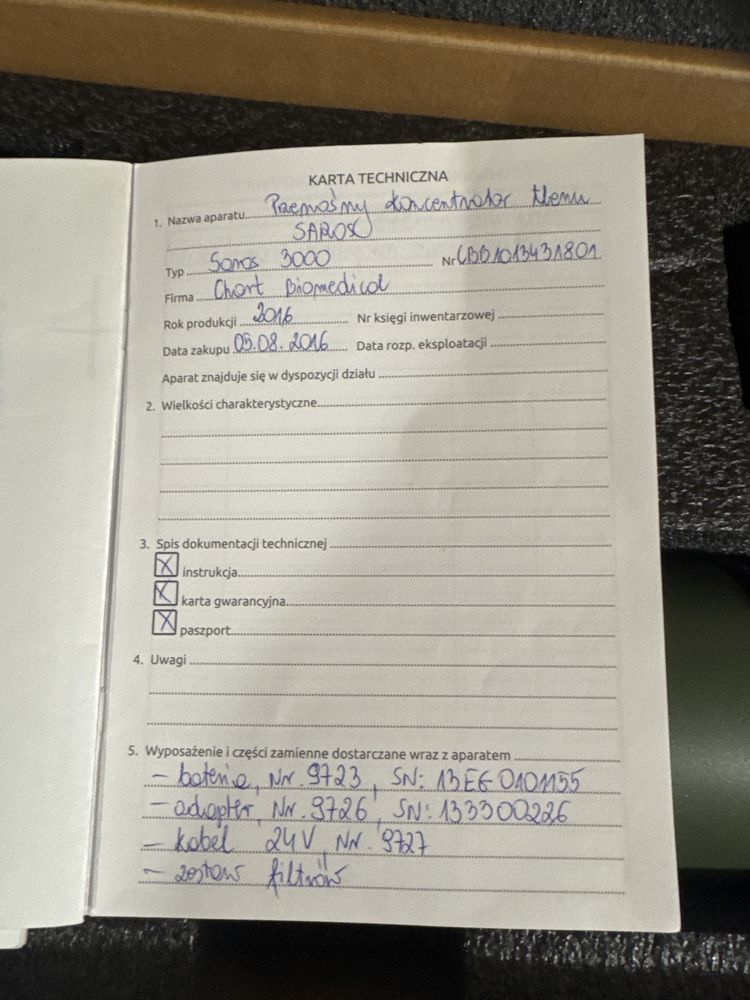 KARTA TECHNICZNA
1. Nazwa aparatu Przenośny koncentrator tlenu
SAROS
Typ Saros 3000 Nr CBB1013431801
Firma Chart Biomedical
Rok produkcji 2016 Nr księgi inwentarzowej
Data zakupu 05.08.2016 Data rozp. eksploatacji
Aparat znajduje się w dyspozycji działu
2. Wielkości charakterystyczne
3. Spis dokumentacji technicznej
X instrukcja
X karta gwarancyjna
X paszport
4. Uwagi
5. Wyposażenie i części zamienne dostarczane wraz z aparatem
- bateria, Nr. 9723, SN: 13EG0101155
- adapter, Nr. 9726, SN: 133300226
- kabel 24V, Nr. 9727
- zestaw filtrów